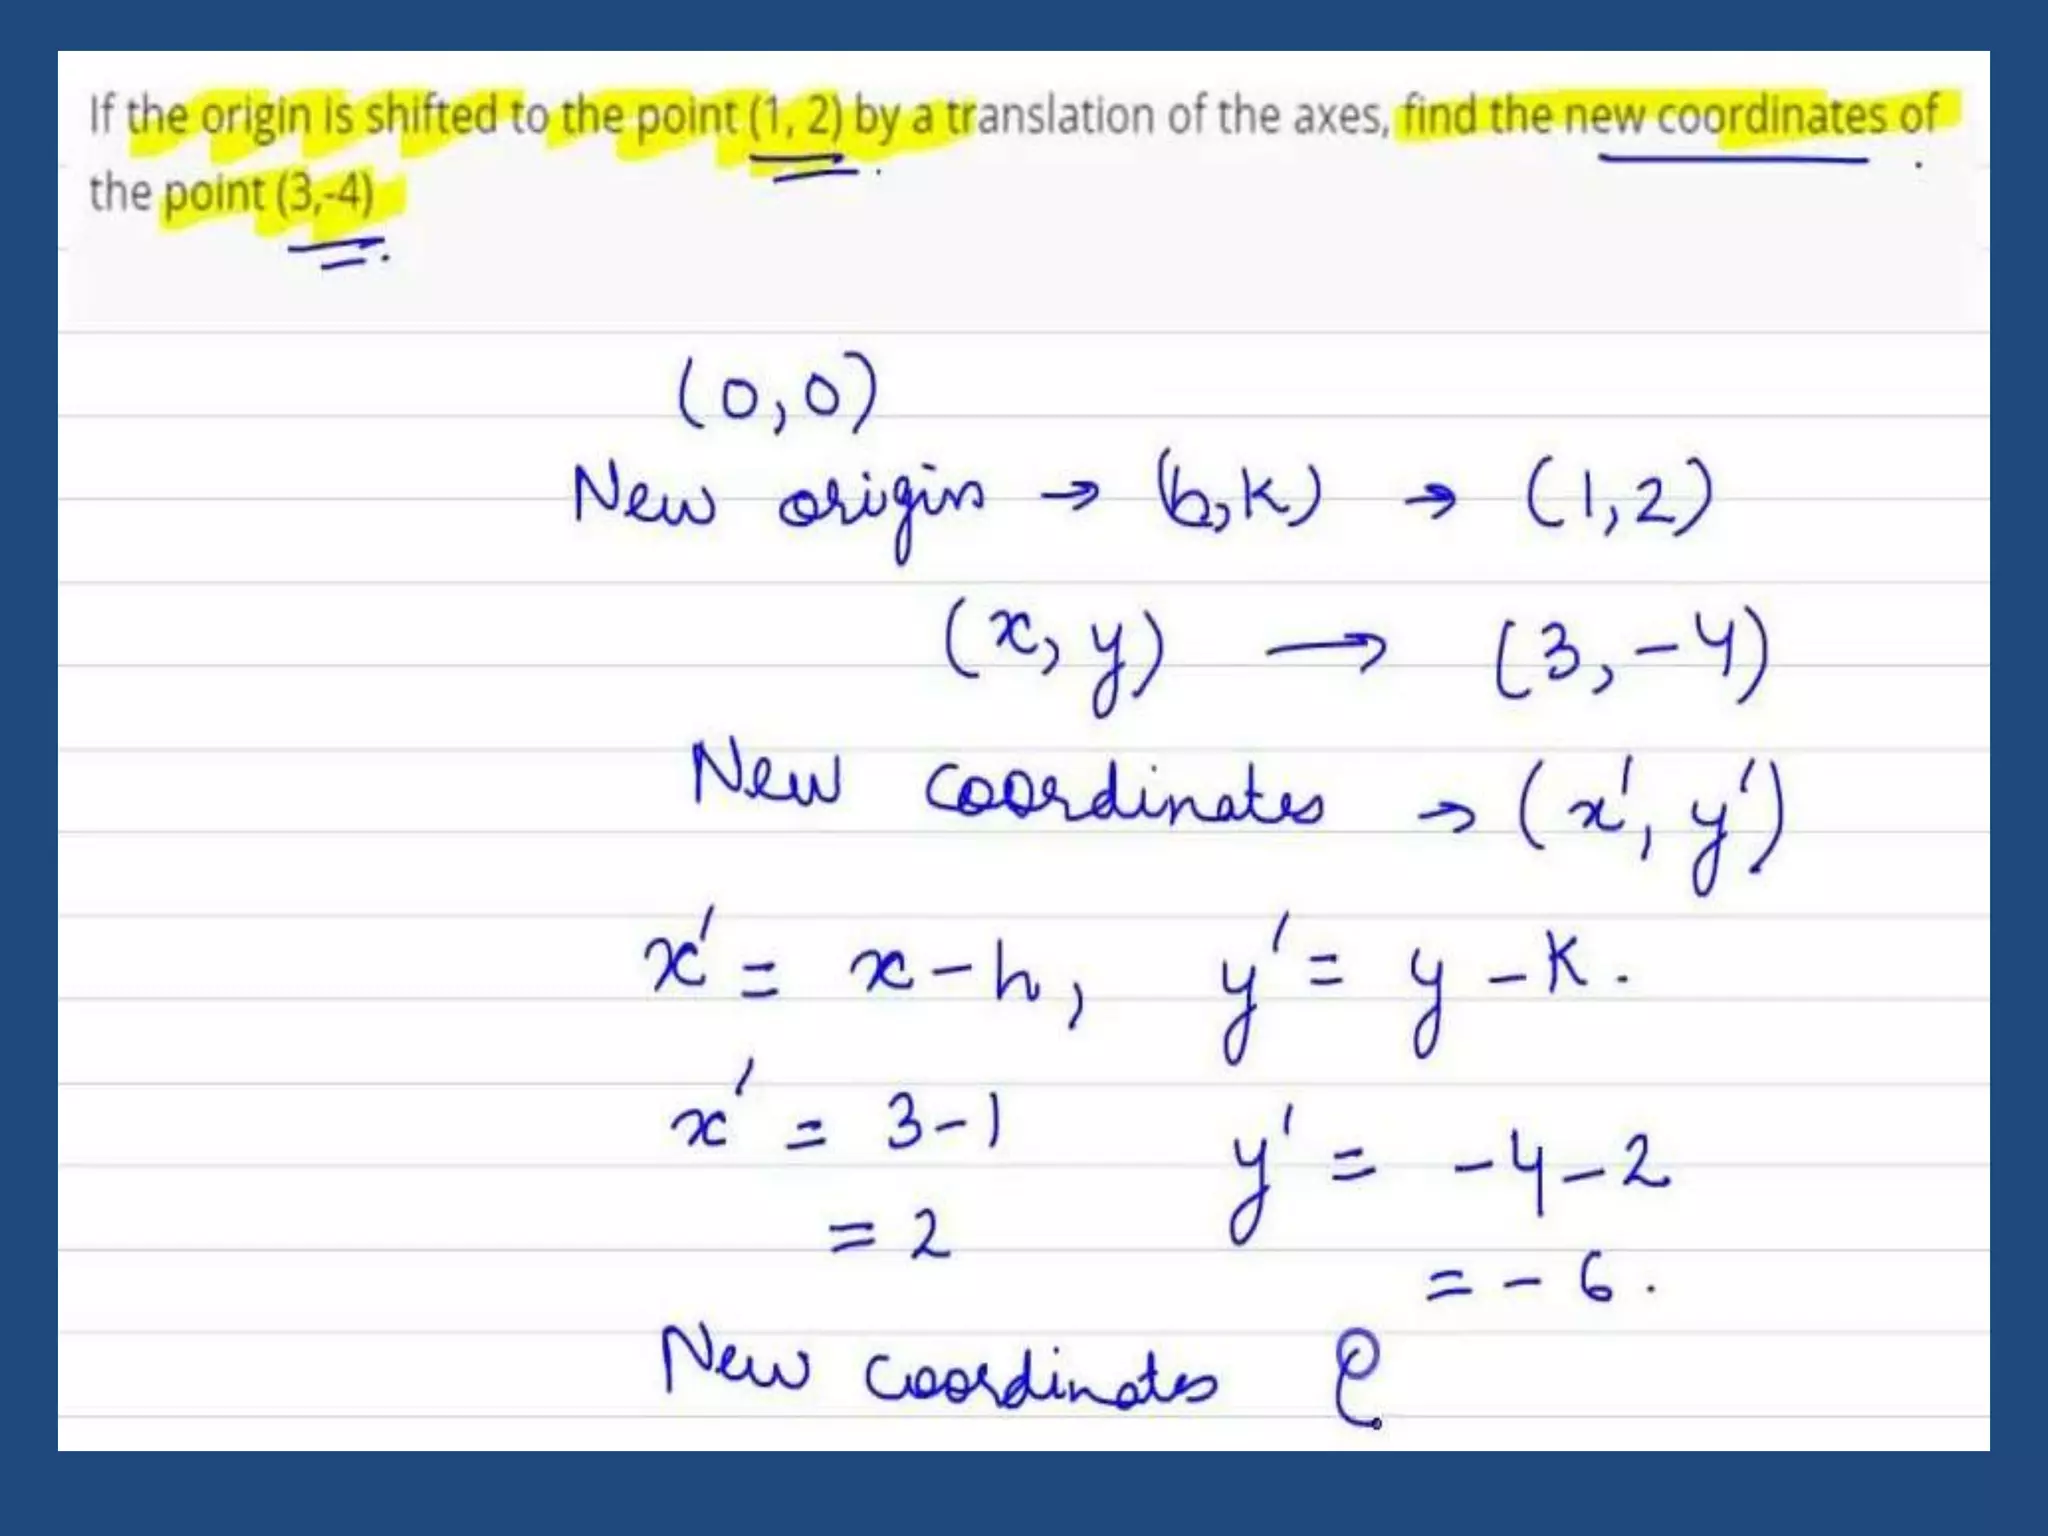 If the origin is shifted to the point (1, 2) by a translation of the axes, find the new coordinates of
the point (3,-4)
(0,0)
New origin → (h,k) → (1,2)
(x, y) → (3,-4)
New coordinates → (x', y')
x' = x-h, y' = y-k.
x' = 3-1 y' = -4-2
= 2 = -6.
New coordinates